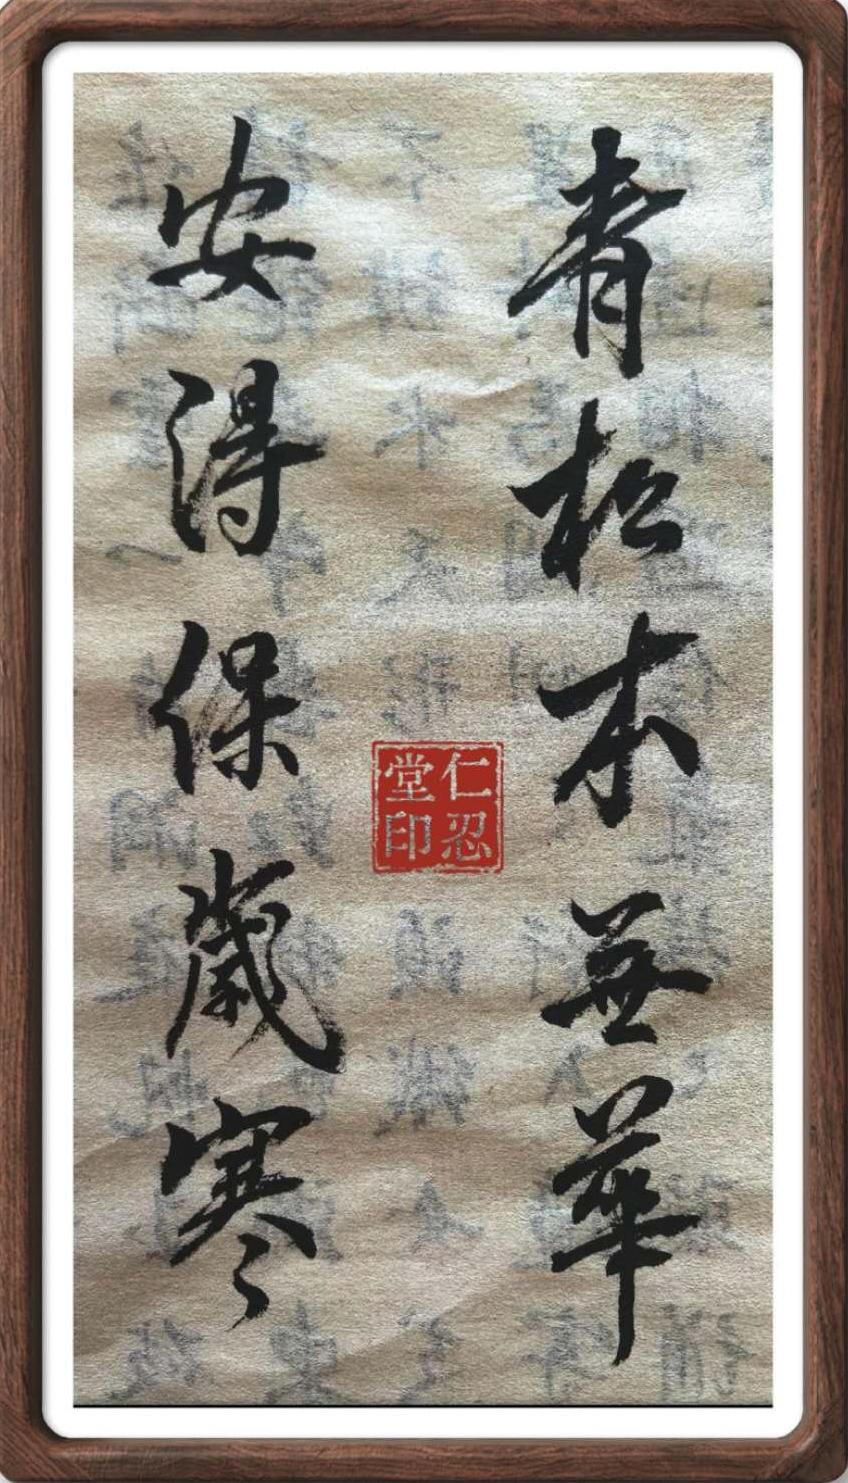 青松本無華
安得保歲寒
仁忍
堂印